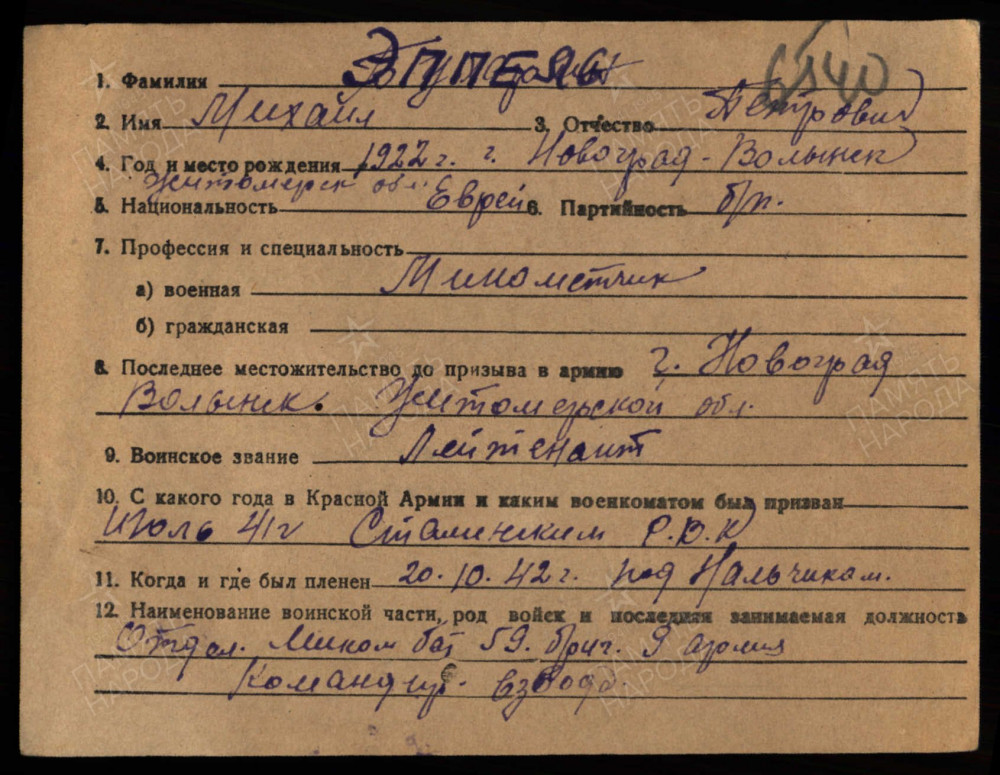 6540
1. Фамилия ЭППЕЛЬ
2. Имя Михаил 3. Отчество Петрович
4. Год и место рождения 1922 г. г. Новоград-Волынск
Житомерск обл.
5. Национальность Еврей 6. Партийность б/п.
7. Профессия и специальность
а) военная Минометчик
б) гражданская
8. Последнее местожительство до призыва в армию г. Новоград
Волынск. Житомерской обл.
9. Воинское звание Лейтенант
10. С какого года в Красной Армии и каким военкоматом был призван
Июль 41г Сталинским Р.В.К
11. Когда и где был пленен 20.10.42 г. под Нальчикам.
12. Наименование воинской части, род войск и последняя занимаемая должность
Отдел. Мином бат 59. бриг. 9 армия
Командир. взвода.
ПАМЯТЬ НАРОДА